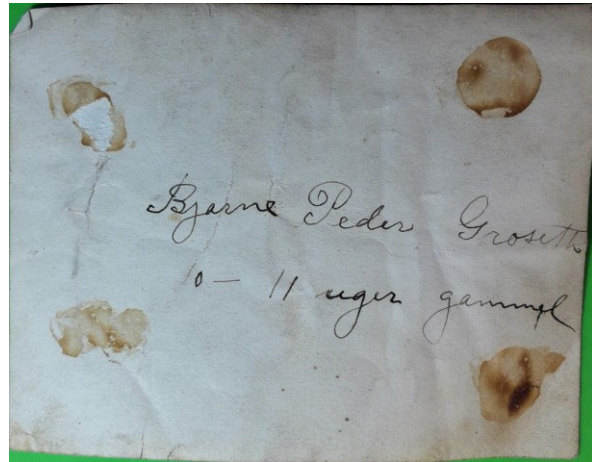 Bjarne Peder Groseth
10 - 11 uger gammel